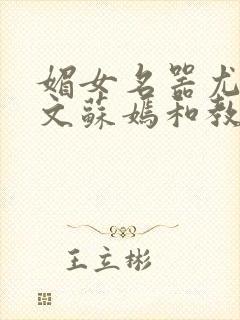 媚女名器尤
文蘇媽和教
王立彬